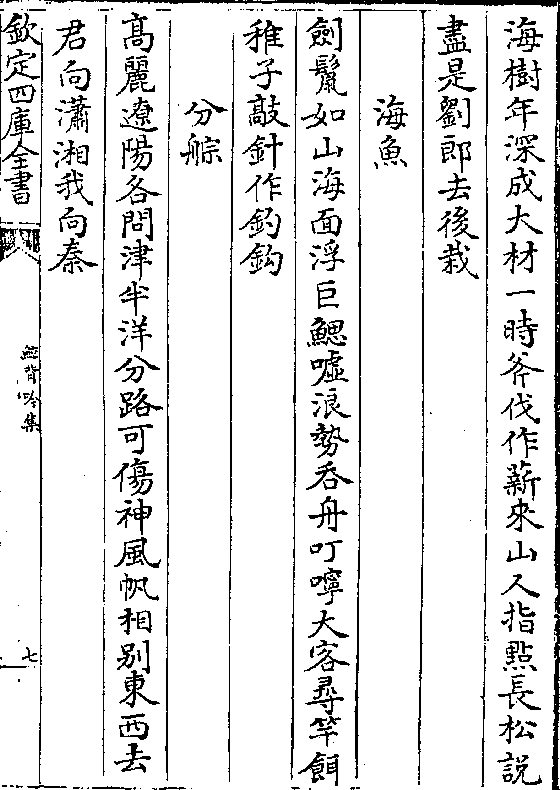 海樹年深成大材一時斧伐作薪來山人指㸃長松説
盡是劉郎去後栽
海魚
劍鬛如山海面浮巨鰓噓浪勢吞舟叮嚀大客尋竿餌
稚子敲針作釣鈎
分䑸
髙麗遼陽各問津半洋分路可傷神風帆相别東西去
君向瀟湘我向秦
欽定四庫全書
鯨背吟集
七